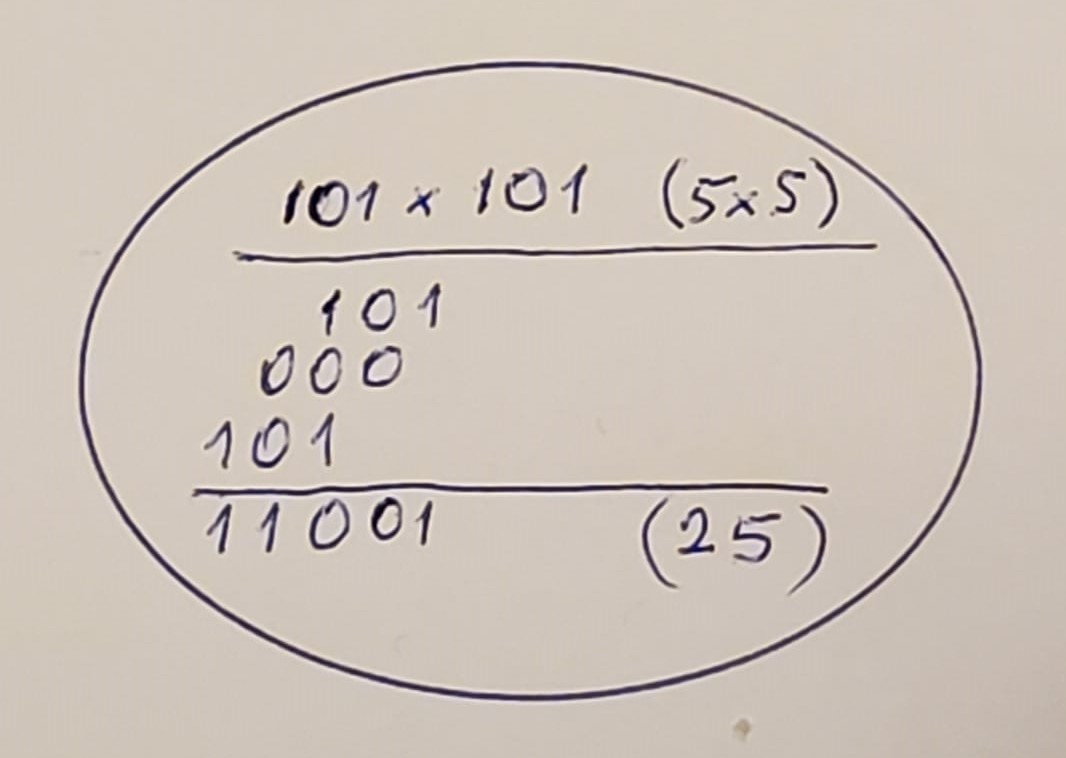 101 × 101 (5×5)
101
000
101
11001 (25)